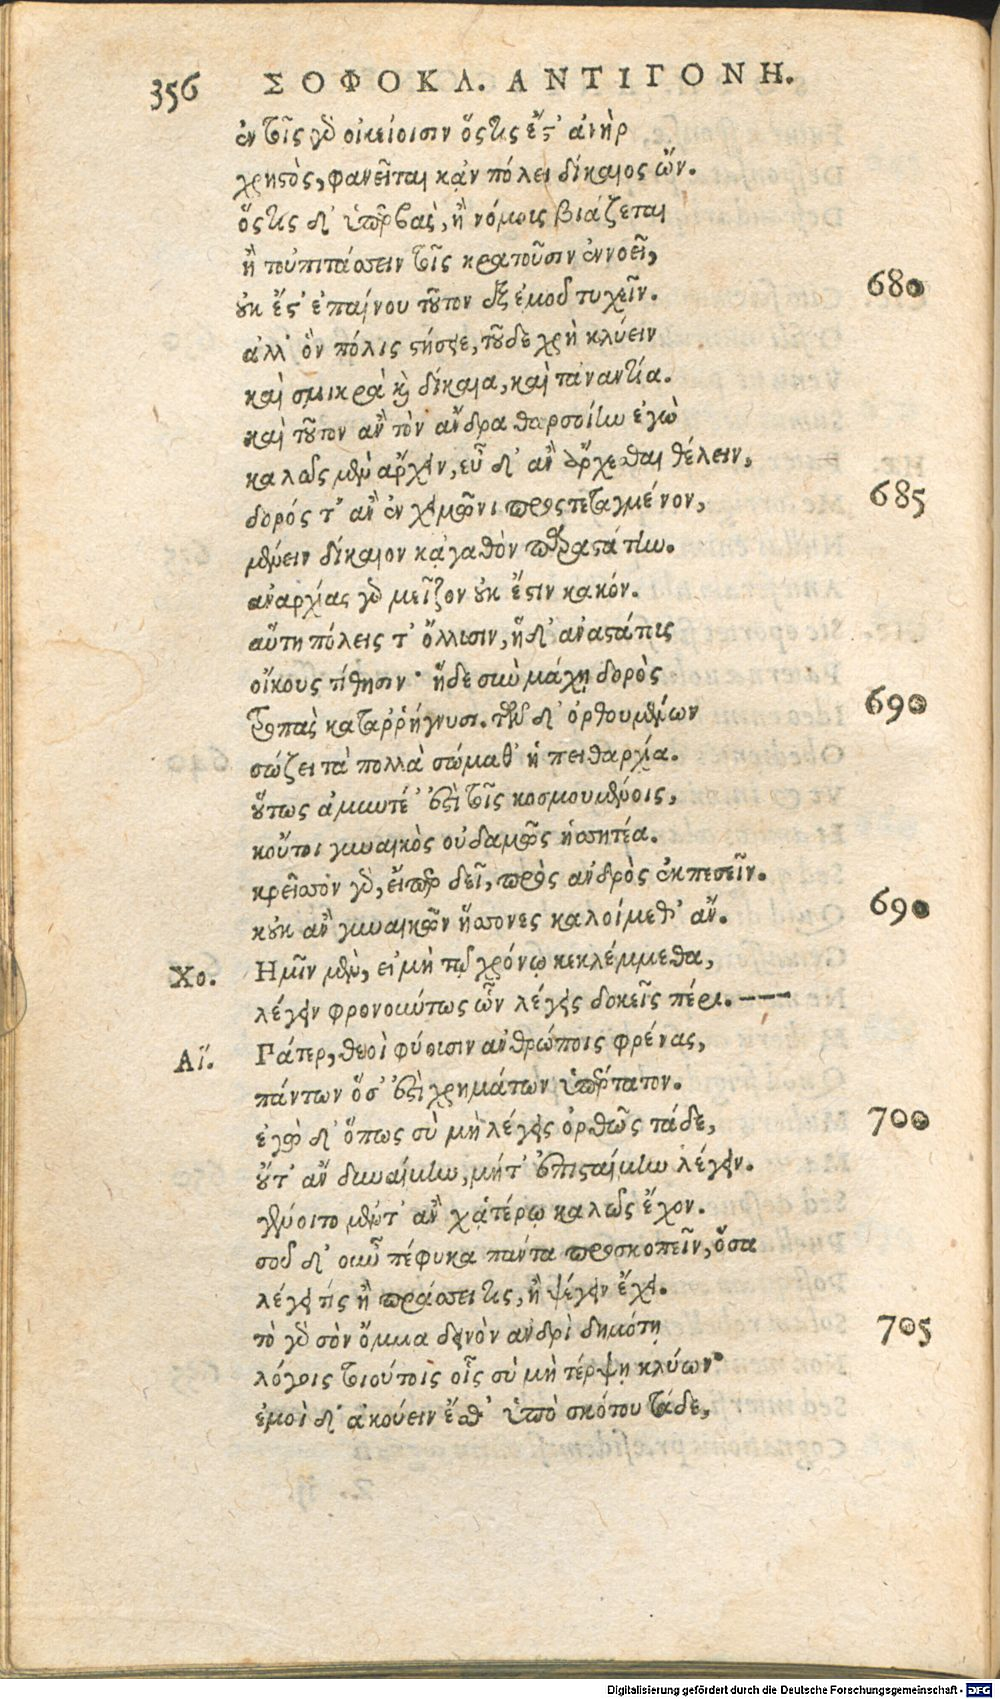 356 ΣΟΦΟΚΛ. ΑΝΤΙΓΟΝΗ.
ἐν τοῖς γὸ οἰκείοισιν ὅςτις ἔς' ἀνὴρ
χρηςὸς, φανεῖται κᾀν πόλει δίκαιος ὤν.
ὅςτις δ' ὑπερβὰς, ἢ νόμοις βιάζεται
ἢ τοὐπιτάσσειν τοῖς κρατοῦσιν ἐννοεῖ,
οὐκ ἔς' ἐπαίνου τοῦτον ἐξ ἐμοῦ τυχεῖν. 680
ἀλλ' ὃν πόλις ςήσειε, τοῦδε χρὴ κλύειν
καὶ σμικρὰ καὶ δίκαια, καὶ τἀναντία.
καὶ τοῦτον ἂν τὸν ἄνδρα θαρσοίην ἐγὼ
καλῶς μὲν ἄρχειν, εὖ δ' ἂν ἄρχεσθαι θέλειν,
δορός τ' ἂν ἐν χειμῶνι προςτεταγμένον, 685
μένειν δίκαιον κᾀγαθὸν παραςάτην.
ἀναρχίας γὸ μεῖζον οὐκ ἔςιν κακόν.
αὕτη πόλεις τ' ὄλλυσιν, ἥδ' ἀναςάτους
οἴκους τίθησιν· ἥδε σὺν μάχῃ δορὸς
τροπὰς καταῤῥήγνυσι. τῶν δ' ὀρθουμένων 690
σώζει τὰ πολλὰ σώμαθ' ἡ πειθαρχία.
οὕτως ἀμυντέ' ἐςὶ τοῖς κοσμουμένοις,
κοὔτοι γυναικὸς οὐδαμῶς ἡσσητέα.
κρεῖσσον γὸ, εἴπερ δεῖ, πρὸς ἀνδρὸς ἐκπεσεῖν.
κοὐκ ἂν γυναικῶν ἥσσονες καλοίμεθ' ἄν. 690
Χο. Ημῖν μὲν, εἰ μὴ τῷ χρόνῳ κεκλέμμεθα,
λέγειν φρονούντως ὧν λέγεις δοκεῖς πέρι. ---
Αἵ. Γάτερ, θεοὶ φύουσιν ἀνθρώποις φρένας,
πάντων ὅσ' ἐςὶ χρημάτων ὑπέρτατον.
ἐγὼ δ' ὅπως σὺ μὴ λέγεις ὀρθῶς τάδε, 700
οὔτ' ἂν δυναίμην, μήτ' ἐπιςαίμην λέγειν.
γένοιτο μέντ' ἂν χᾀτέρῳ καλῶς ἔχον.
σοῦ δ' οὖν πέφυκα πάντα προσκοπεῖν, ὅσα
λέγει τίς ἢ πράσσει τις, ἢ ψέγειν ἔχει.
τὸ γὸ σὸν ὄμμα δεινὸν ἀνδρὶ δημότῃ 705
λόγοις τοιούτοις οἷς σὺ μὴ τέρψῃ κλύων·
ἐμοὶ δ' ἀκούειν ἔσθ' ὑπὸ σκότου τάδε,
Digitalisierung gefördert durch die Deutsche Forschungsgemeinschaft - DFG